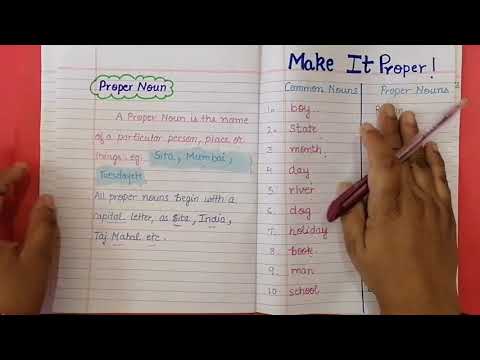 Proper Noun
A Proper Noun is the name
of a particular person, place or
things. eg. Sita, Mumbai,
Tuesday etc.
All proper nouns begin with a
capital letter, as Sita, India,
Taj Mahal etc.
Make It Proper!
Common Nouns Proper Nouns
1. boy
2. State
3. month
4. day
5. river
6. dog
7. holiday
8. book
9. man
10. school